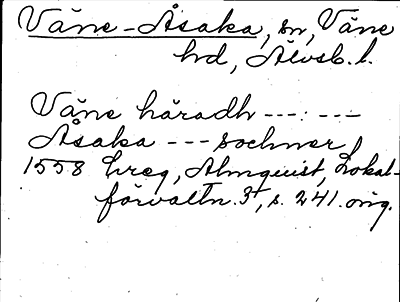 Väne-Åsaka, sn, Väne
hd, Älvsb. l.
Väne häradh --- : ---
Åsaka --- sochner
1558 hreg, Almquist, Lokal-
förvaltn. 3, s. 241. orig.